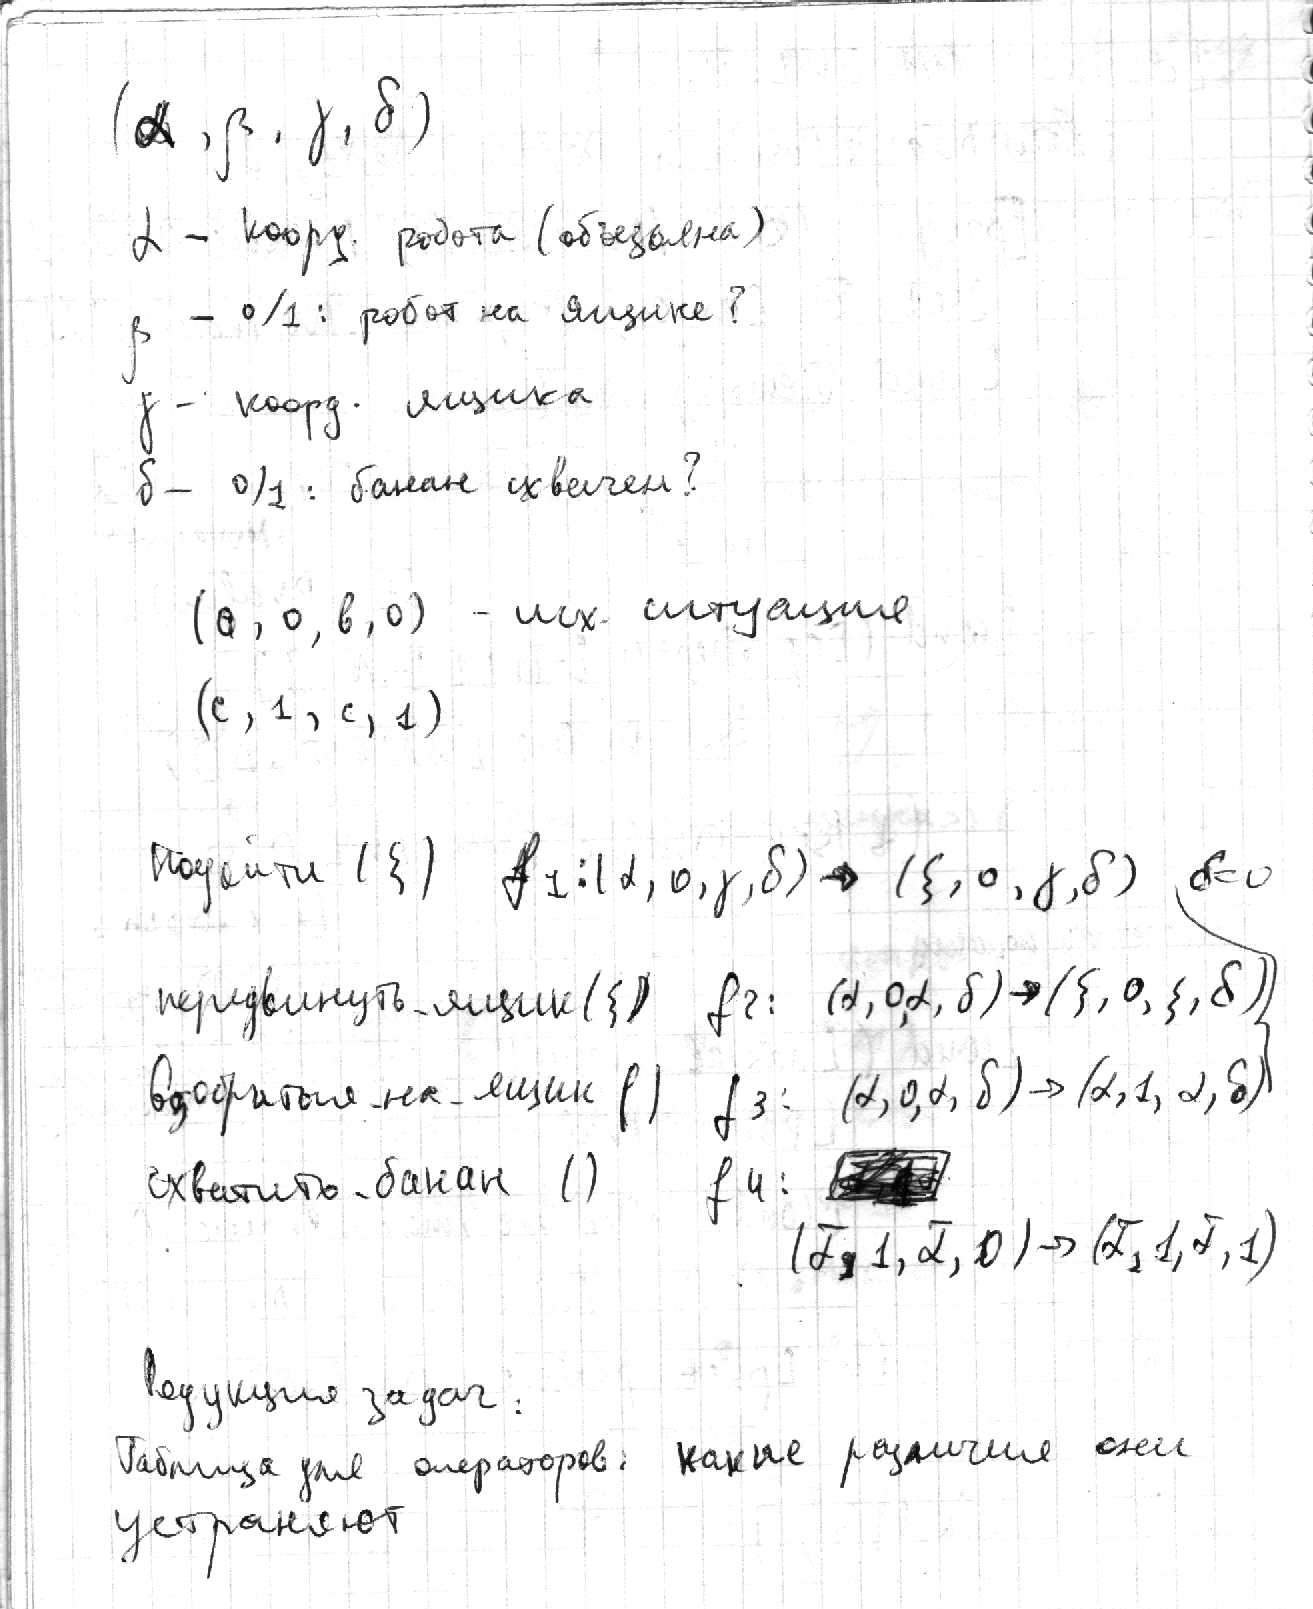 (α, β, γ, δ)
α – коорд. робота (обезьяна)
β – 0/1: робот на ящике?
γ – коорд. ящика
δ – 0/1: банан схвачен?
(a, 0, b, 0) - исх. ситуация
(c, 1, c, 1)
Подойти (ξ) f1: (α, 0, γ, δ) → (ξ, 0, γ, δ) δ=0
передвинуть_ящик(ξ) f2: (α, 0, α, δ) → (ξ, 0, ξ, δ)
взобраться_на_ящик () f3: (α, 0, α, δ) → (α, 1, α, δ)
схватить_банан () f4:
(ᾱ, 1, ᾱ, 0) → (ᾱ, 1, ᾱ, 1)
Редукция задач:
Таблица для операторов: какие различия они
устраняют